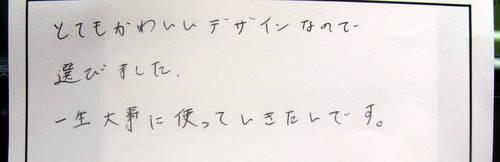 とてもかわいいデザインなので
選びました.
一生大事に使っていきたいです。